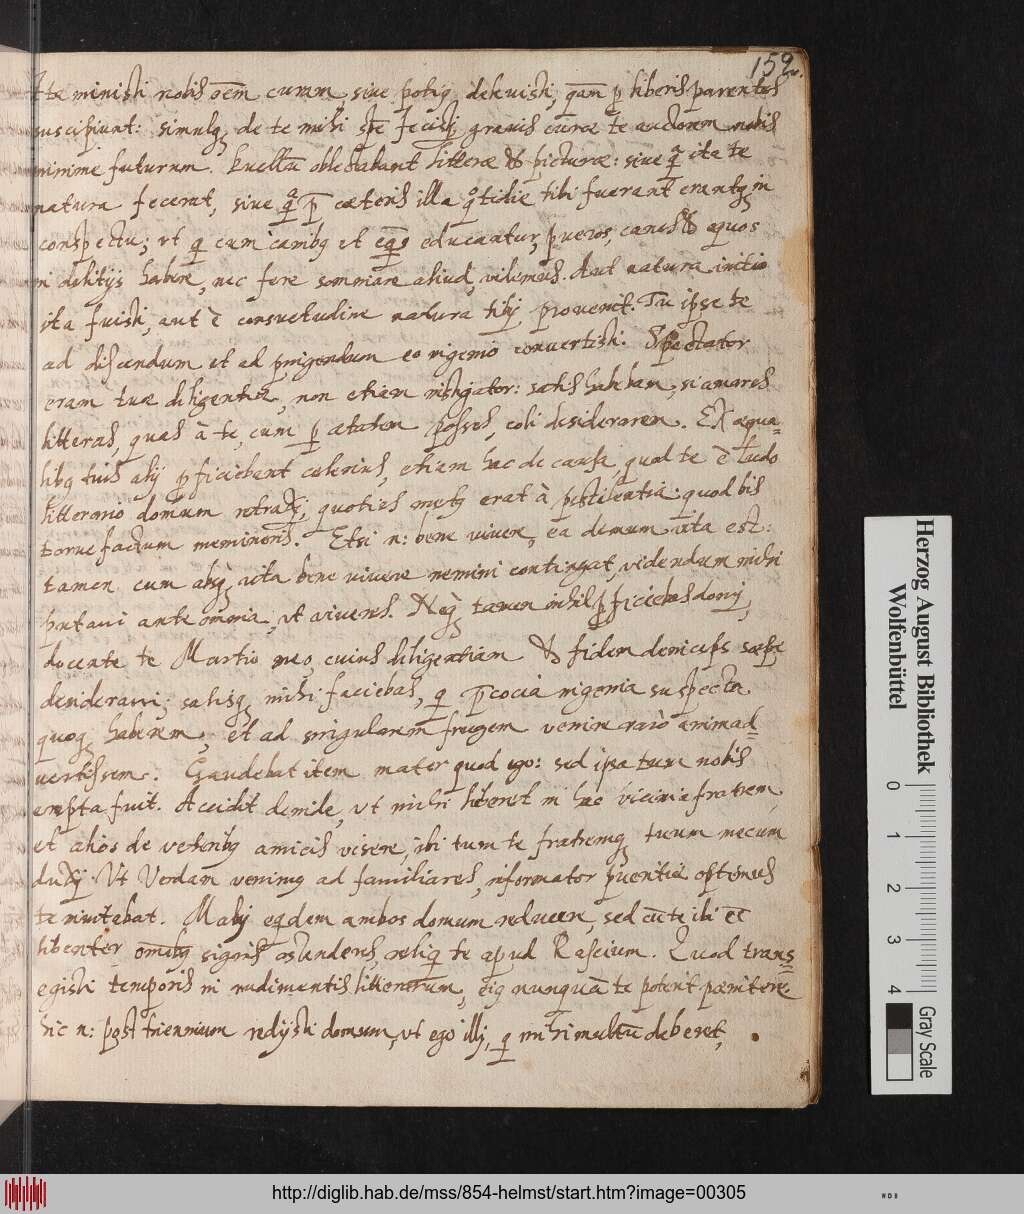 159.
te ministi nobis oẽm curam, sive potiꝰ dehuisti, qãm p liberis parentes
suscipiunt: simulqꝫ de te mihi spẽ fecisti gravis curæ te auctorem nobis
minime futurum. Multũ oblectabant litteræ & picturæ: sive q ita te
natura fecerat, sive q p cæteris illa qtidie tibi fuerant erantqꝫ in
conspectu; ut q cum canibꝰ et eqs educantur, pueros, canes & equos
in delitijs habere, nec fere somniare aliud, videmus. Aut natura
ita fuisti, aut è consuetudine natura tibi provenit. Tu ipse te
ad discendum et ad pingendum eo ingenio convertisti. Spectator
eram tuæ diligentiæ, non etiam instigator: satis habebam, si amares
litteras, quas à te, cum p ætatem posses, coli desiderarem. Ex æqua-
libꝰ tuis alij pficiebant celerius, etiam hac de causa, quod te è ludo
litterario domum retraxi, quoties metꝰ erat à pestilentia: quod bis
terve factum memineris. Etsi n: bene vivere, ea demum vita est:
tamen cum absqꝫ vita bene vivere nemini contingat, videndum mihi
putavi ante omnia, ut viveres. Neqꝫ tamen nihil pficiebas domi,
docente te Martio meo, cuius diligentiam & fidem deinceps sæpe
desideravi; satisqꝫ mihi faciebas, q p̃cocia ingenia suspecta
quoqꝫ haberem, et ad singularem frugem venire rarò animad-
vertissem. Gaudebat item mater quod ego: sed ipsa tum nobis
erepta fuit. Accidit deinde, ut mihi liberet in hac vicinia fratrem,
et alios de veteribꝰ amicis visere, ibi tum te fratremqꝫ tuum mecum
duxi. Ut Verdam venimꝰ ad familiares, informator pueritiæ optimus
te invitabat. Malui eqdem ambos domum reducere, sed cũ te ibi eẽ
libenter omnibꝰ signis ostenderes, reliqi te apud Rascium. Quod trans-
egisti temporis in rudimentis litterarum, eiꝰ nunquã te potest pœnitere.
Sic n: post triennium redijsti domum, ut ego illi, q mihi multũ deberet,
Herzog August Bibliothek
Wolfenbüttel
0 1 2 3 4
Gray Scale
http://diglib.hab.de/mss/854-helmst/start.htm?image=00305